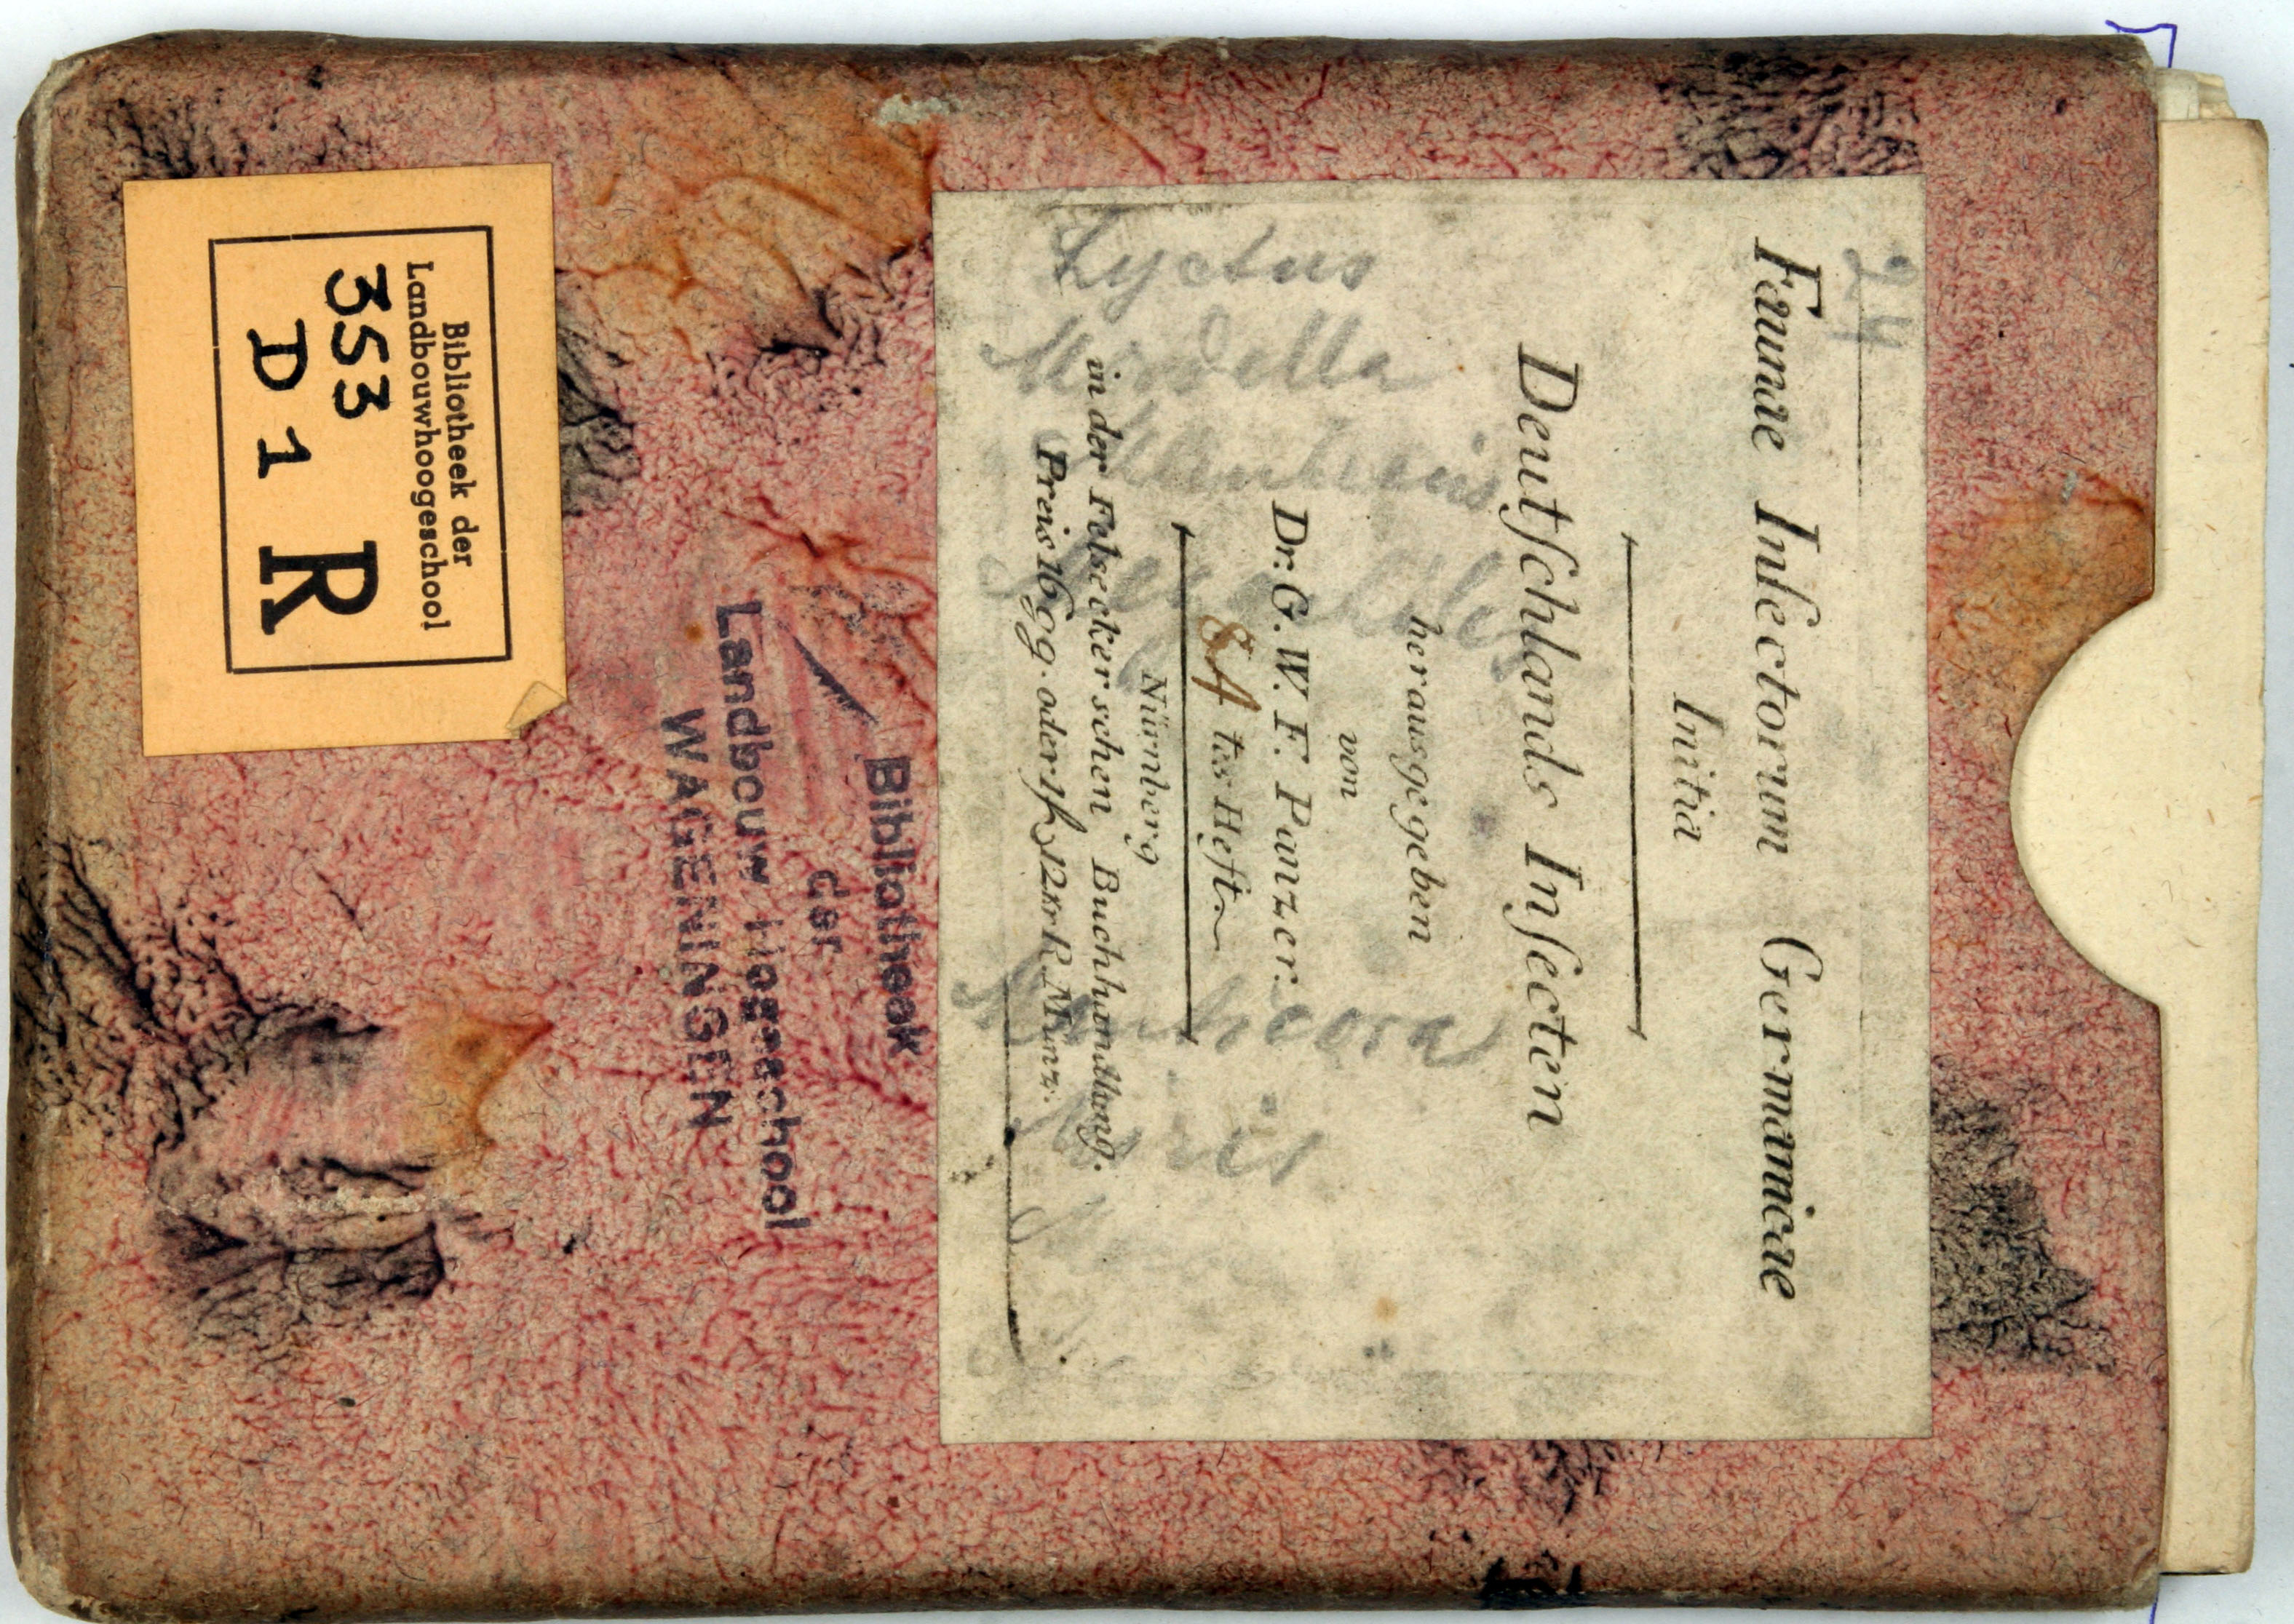 24
Faunae Insectorum Germanicae
Initia
Deutſchlands Inſecten
herausgegeben
von
Dr. G. W. F. Panzer.
84 tes Heft
Nürnberg
in der Felseckerschen Buchhandlung.
Preis 16 gg. oder 1 f 12 xr R. Münz.
Lyctus
Mordella
Manticora
Bibliotheek
der
Landbouw Hoogeschool
WAGENINGEN
Bibliotheek der
Landbouwhoogeschool
353
D 1 R